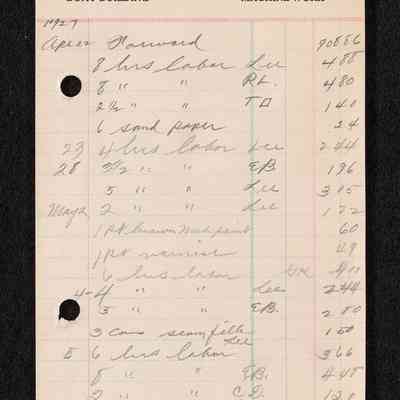 BOAT BUILDING MACHINE WORK
1927
Apr 22 Forward 908 86
8 hrs labor Lee 4 88
8 " " R.L. 4 80
2 1/2 " " T D 1 40
6 sand paper 24
23 4 hrs labor Lee 2 44
28 3 1/2 " " E.B. 1 96
5 " " Lee 3 05
May 2 2 " " Lee 1 22
1 pt brown 60
1 pt varnish 49
6 hrs labor
4 " " Lee 2 44
5 " " E.B. 2 80
3 cans seam filler 1 50
Lee
5 6 hrs labor 3 66
8 " " E.B. 4 48
2 " " C.D. 1 20